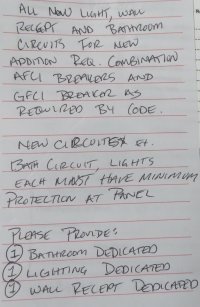 ALL NEW LIGHT, WALL
RECEPT AND BATHROOM
CIRCUITS FOR NEW
ADDITION REQ. COMBINATION
AFCI BREAKERS AND
GFCI BREAKER AS
REQUIRED BY CODE.
NEW
BATH CIRCUIT, LIGHTS
EACH MUST HAVE MINIMUM
PROTECTION AT PANEL
PLEASE PROVIDE:
① BATHROOM DEDICATED
① LIGHTING DEDICATED
① WALL RECEPT DEDICATED